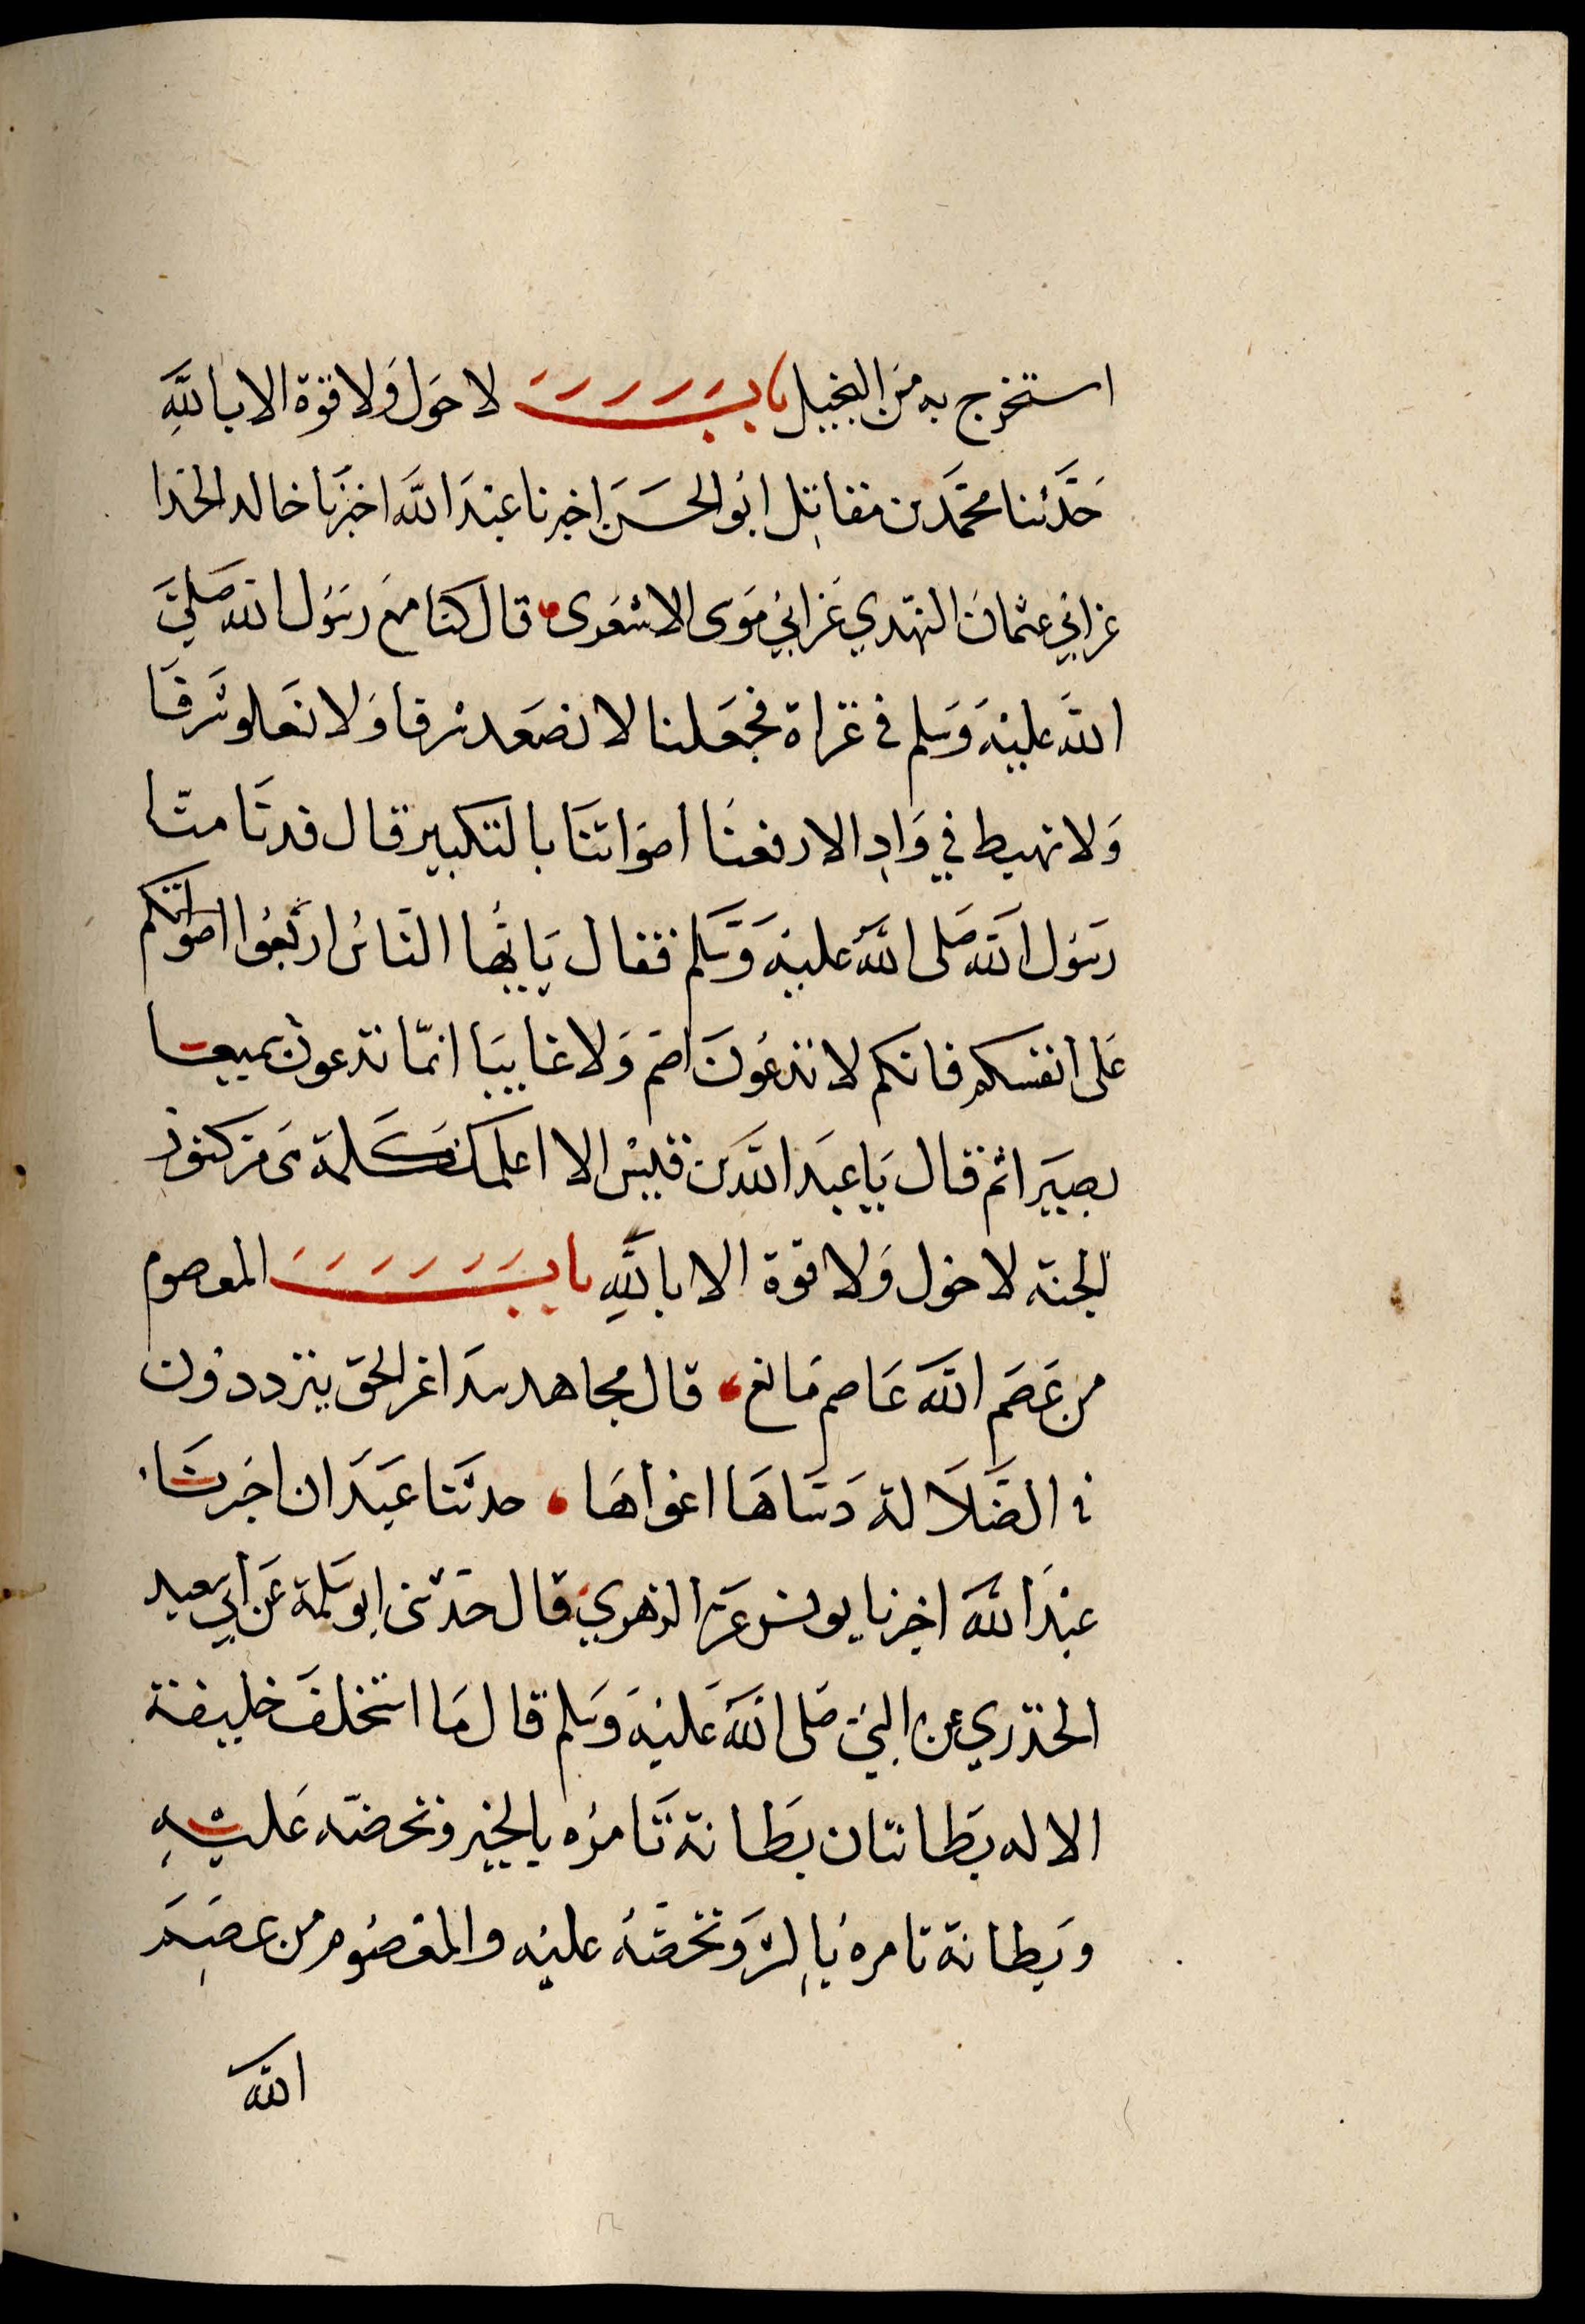 استخرج به من البخيل باب لا حول ولا قوة الا بالله
حدثنا محمد بن مقاتل ابو الحسن اخبرنا عبد الله اخبرنا خالد الحذا
عن ابي عثمان النهدي عن ابي موسى الاشعرى قال كنا مع رسول الله صلى
الله عليه وسلم في غزاة فجعلنا لا نصعد شرفا ولا نعلو شرفا
ولا نهبط في واد الا رفعنا اصواتنا بالتكبير قال فدنا منا
رسول الله صلى الله عليه وسلم فقال يا ايها الناس اربعوا اصواتكم
على انفسكم فانكم لا تدعون اصم ولا غايبا انما تدعون سميعا
بصيرا ثم قال يا عبد الله بن قيس الا اعلمك كلمة هي من كنوز
الجنة لا حول ولا قوة الا بالله باب المعصوم
من عصم الله عاصم مانع قال مجاهد سدا عن الحق يترددون
في الضلالة دساها اغواها حدثنا عبدان اخبرنا
عبد الله اخبرنا يونس عن الزهري قال حدثنى ابو سلمة عن ابي سعيد
الخدري عن النبي صلى الله عليه وسلم قال ما استخلف خليفة
الا له بطانتان بطانة تامره بالخير وتحضه عليه
وبطانة تامره بالشر وتحضه عليه والمعصوم من عصم
الله